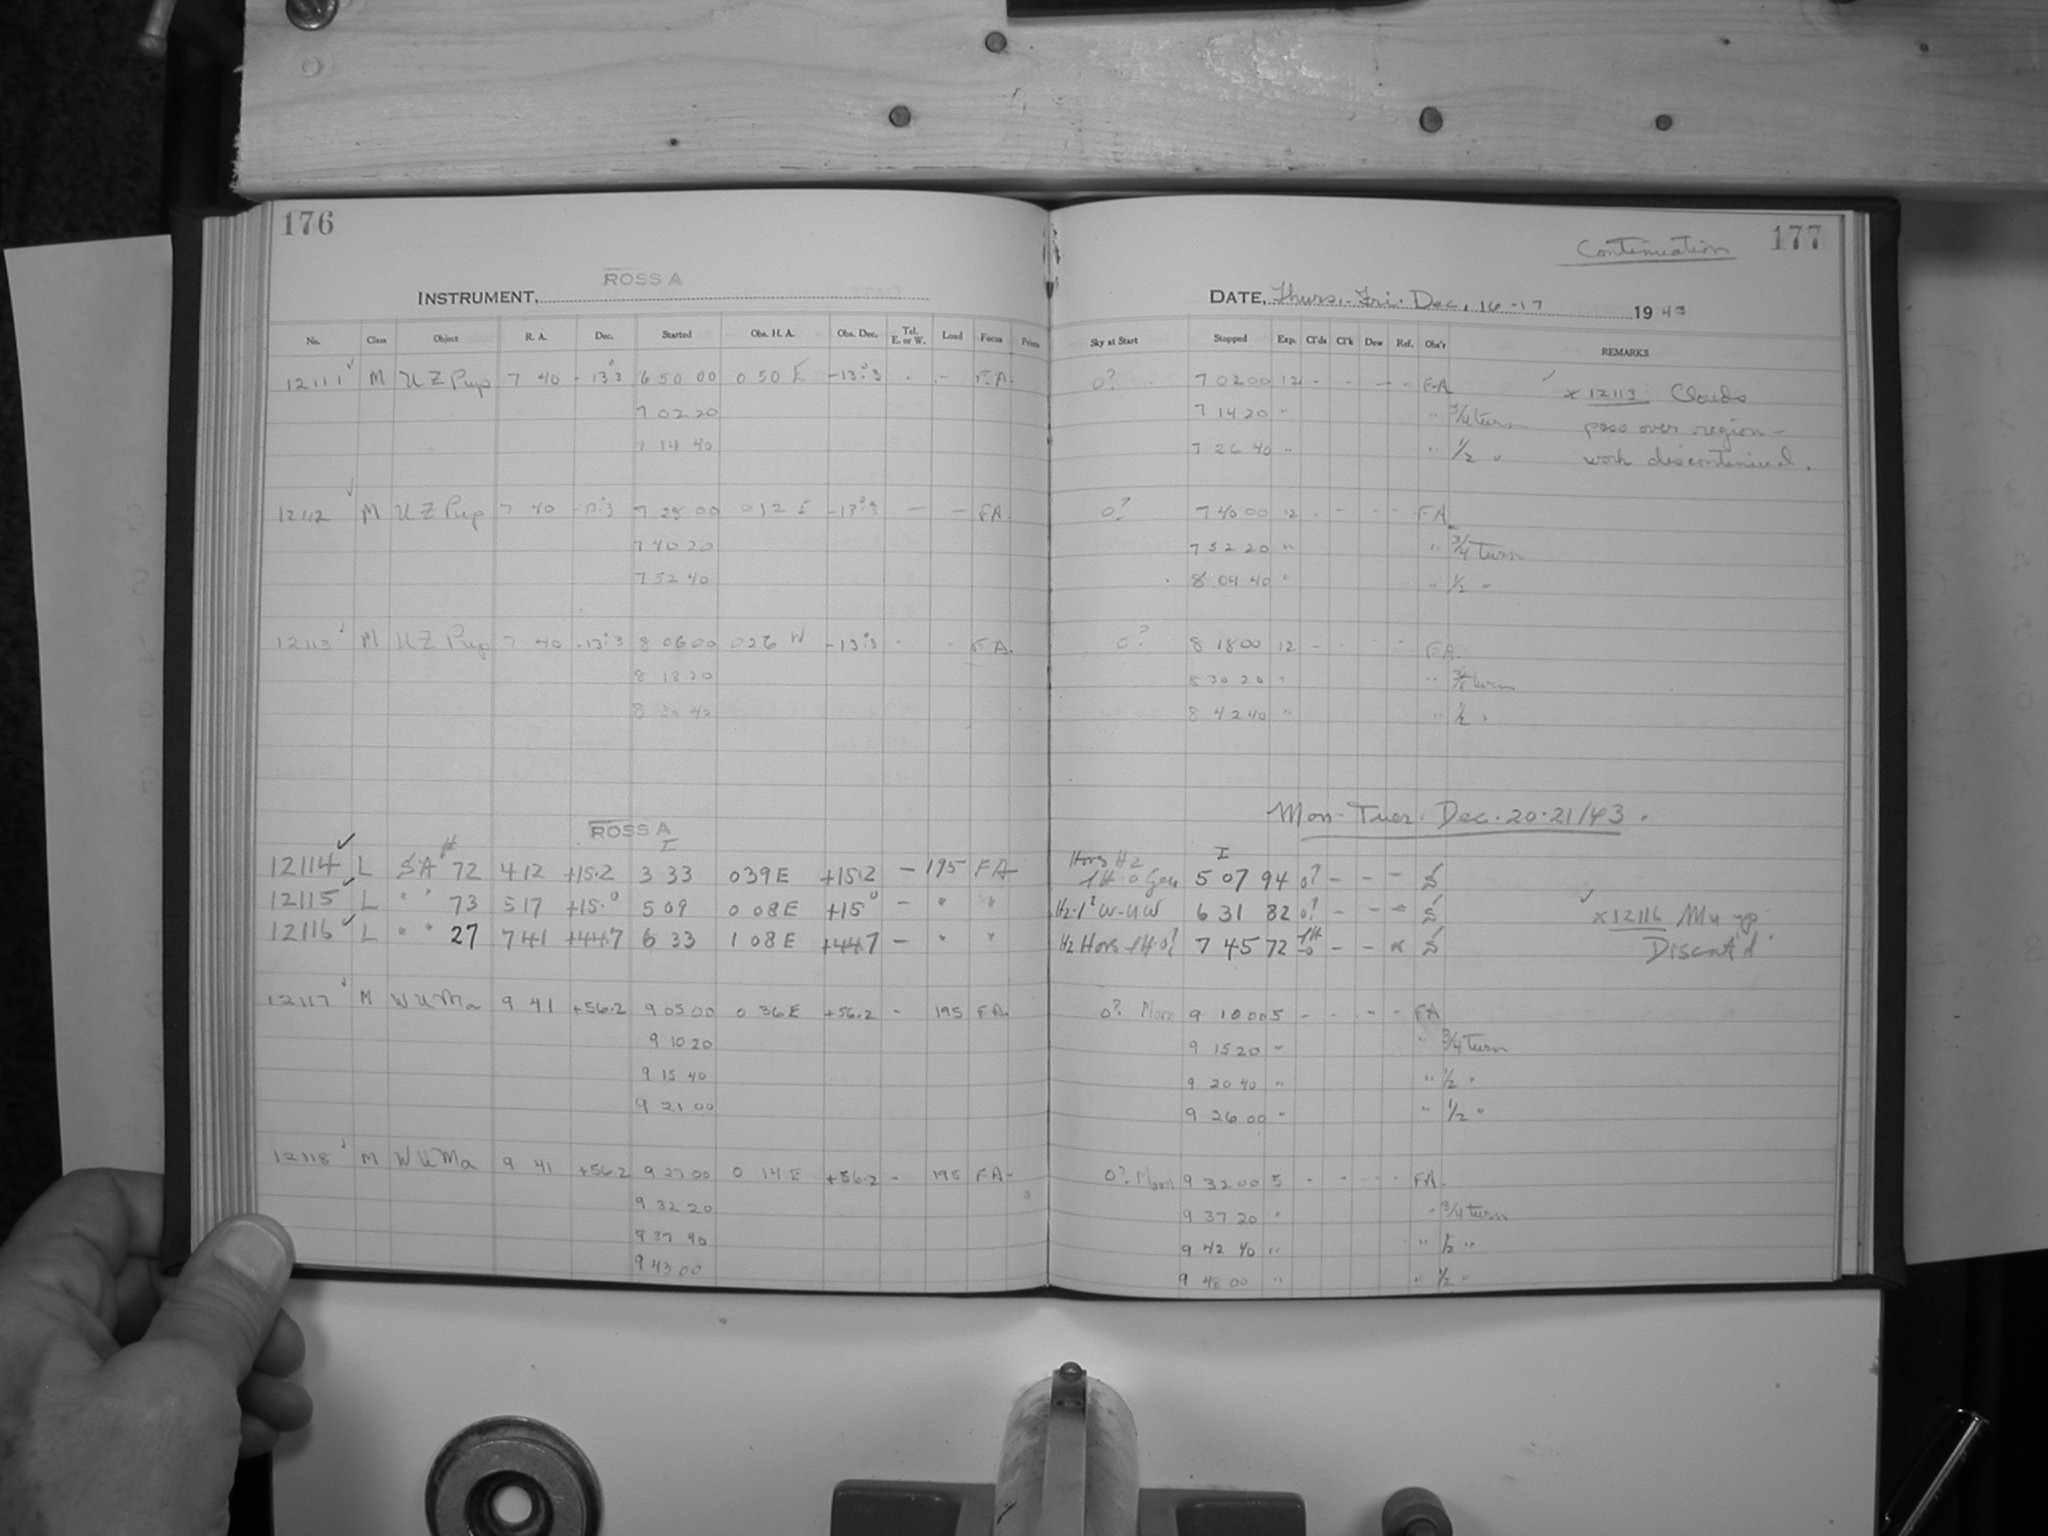 176
ROSS A
INSTRUMENT,
No. Class Object R. A. Dec. Started Obs. H. A. Obs. Dec. Tel. E. or W. Load Focus Prism
12111 M U Z Pup 7 40 -13.3 6 50 00 0 50 E -13.3 - - F.A.
7 02 20
7 14 40
12112 M U Z Pup 7 40 -13.3 7 28 00 0 12 E -13.3 - - FA.
7 40 20
7 52 40
12113 M U Z Pup 7 40 -13.3 8 06 00 0 26 W -13.3 - - F.A.
8 18 20
8 30 40
ROSS A
I
12114 L SA # 72 4 12 +15.2 3 33 0 39 E +15.2 - 195 FA
12115 L " " 73 5 17 +15.° 5 09 0 08 E +15° - " "
12116 L " " 27 7 41 +44.7 6 33 1 08 E +44.7 - " "
12117 M W U Ma 9 41 +56.2 9 05 00 0 36 E +56.2 - 195 F.A.
9 10 20
9 15 40
9 21 00
12118 M W U Ma 9 41 +56.2 9 27 00 0 14 E +56.2 - 195 F.A-
9 32 20
9 37 40
9 43 00
Continuation 177
DATE, Thurs.-Fri. Dec. 16-17 1943
Sky at Start Stopped Exp. Cl'ds Cl'k Dew Ref. Obs'r REMARKS
0? 7 02 00 12 - - - - F.A x 12113 Clouds
7 14 20 " " 3/4 turn pass over region -
7 26 40 " " 1/2 " work discontinued.
0? 7 40 00 12 - - - - F.A.
7 52 20 " " 3/4 turn
8 04 40 " " 1/2 "
0? 8 18 00 12 - - - F.A.
8 30 20 " " 3/4 turn
8 42 40 " " 1/2 "
Mon-Tues. Dec. 20-21/43.
I
5 07 94 0? - - -
6 31 82 0? - - - x 12116
7 45 72 - - Discont'd
0? Moon 9 10 00 5 - - - - FA
9 15 20 " " 3/4 turn
9 20 40 " " 1/2 "
9 26 00 " " 1/2 "
0? Moon 9 32 00 5 - - - - F.A.
9 37 20 " " 3/4 turn
9 42 40 " " 1/2 "
9 48 00 " " 1/2 "